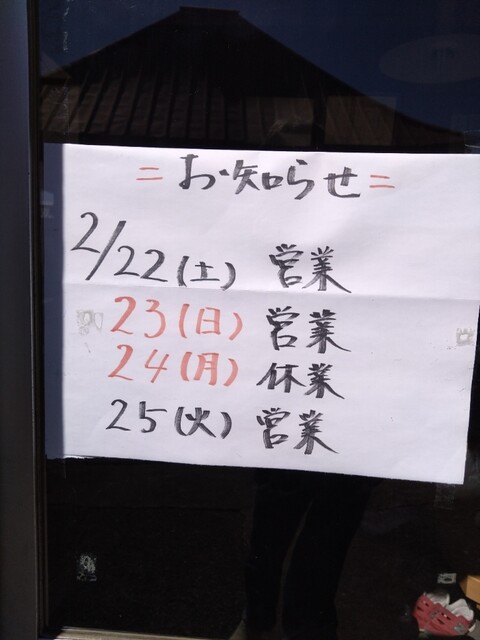 =お知らせ=
2/22(土) 営業
23(日) 営業
24(月) 休業
25(火) 営業